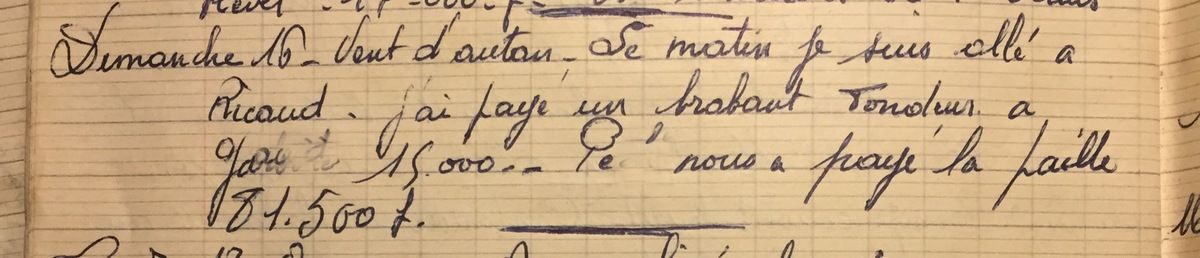 Dimanche 16 - Vent d'autan - Le matin je suis allé a
Ricaud. j'ai payé un brabant Fondeur a
15.000 -- nous a payé la paille
81.500 f.